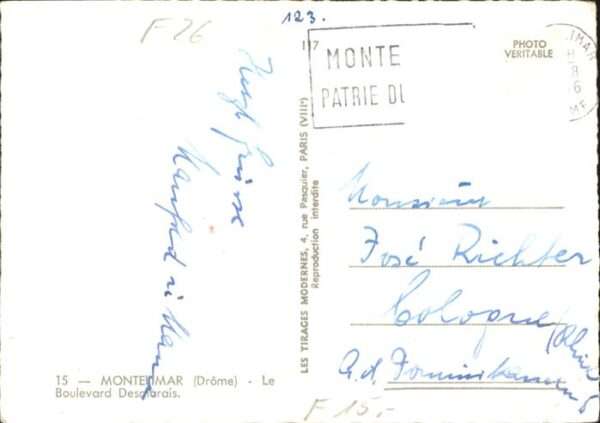 F 26
123.
117
MONTE
PATRIE DU
PHOTO
VERITABLE
LIMAR
Herzl. Grüsse
Manfred u.
LES TIRAGES MODERNES, 4, rue Pasquier, PARIS (VIIIe)
Reproduction interdite
Monsieur
José Richter
Cologne
(Rhin)
A.d. Dominikanern
15 — MONTELIMAR (Drôme) - Le
Boulevard Desmarais.
F 15,-